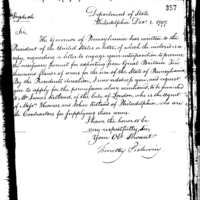 357
Department of State
Philadelphia Dec. 2. 1797.
Sir,
The Governor of Pennsylvania has written to the
President of the United States a letter, of which the inclosed is a
copy, requesting a letter to engage your interposition to procure
the necessary permit for exporting from Great Britain Ten
thousand stands of arms for the use of the State of Pennsylvania.
By the President's direction, I now address you, and request
you to apply for the permission above mentioned, to be furnished
to Mr. James Kirkland, of the City of London, who is the Agent
of Messrs. Thomas and John Kirkland of Philadelphia, who are
the Contractors for supplying these arms.
I have the honor to be
very respectfully, Sir,
Your Obt. Servant
Timothy Pickering